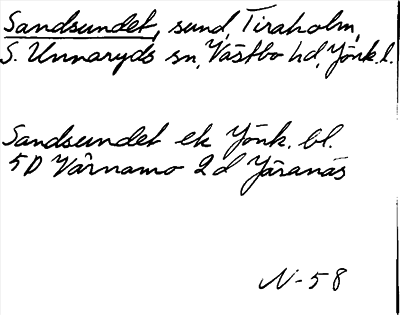 Sandsundet, sund, Tiraholm,
S. Unnaryds sn, Västbo hd, Jönk. l.
Sandsundet ek Jönk. bl.
5D Värnamo 2d Järanäs
N-58